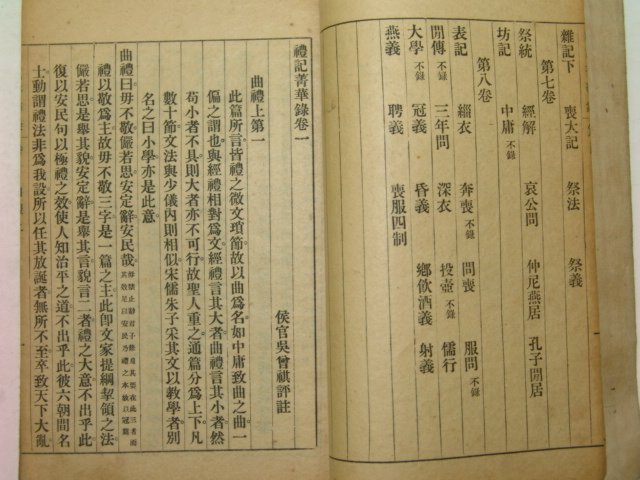 雜記下 喪大記 祭法 祭義
第七卷
祭統 經解 哀公問 仲尼燕居 孔子閒居
坊記 中庸不錄
第八卷
表記 緇衣 奔喪不錄 問喪 服問不錄
閒傳不錄 三年問 深衣 投壺不錄 儒行
大學不錄 冠義 昏義 鄉飲酒義 射義
燕義 聘義 喪服四制
禮記菁華錄卷一
侯官吳曾祺評註
曲禮上第一
此篇所言皆禮之微文瑣節故以曲爲名如中庸致曲之曲一
偏之謂也與經禮相對爲文經禮言其大者曲禮言其小者然
苟小者不具則大者亦不可行故聖人重之通篇分爲上下凡
數十節文法與少儀內則相似宋儒朱子采其文以敎學者別
名之曰小學亦是此意
曲禮曰毋不敬儼若思安定辭安民哉
禮以敬爲主故毋不敬三字是一篇之主此卽文家提綱挈領之法
儼若思是舉其貌安定辭是舉其言貌言二者禮之大意不出乎此
復以安民句以極禮之效使人知治平之道不出乎此彼六朝間名
士動謂禮法非爲我設所以任其放誕者無所不至卒致天下大亂